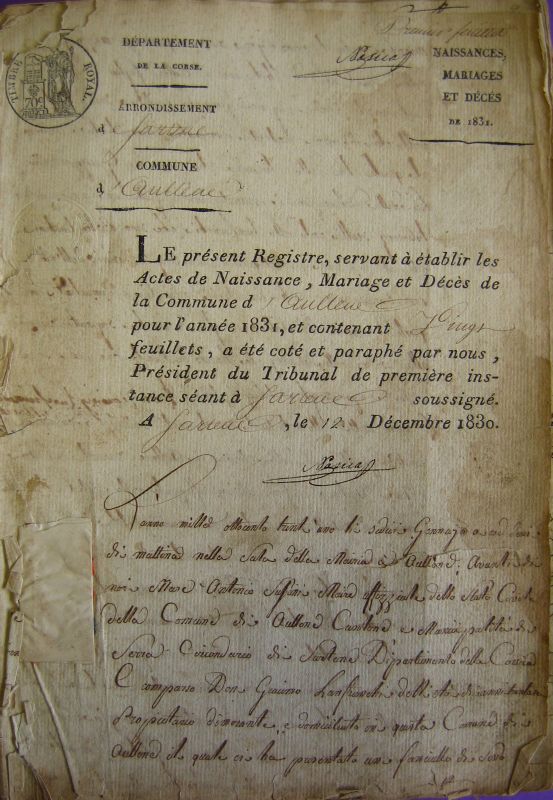 TIMBRE ROYAL.
DÉPARTEMENT
DE LA CORSE.
ARRONDISSEMENT
d e Sartene
COMMUNE
d 'Aullene
Premier feuillet
NAISSANCES,
MARIAGES
ET DÉCÈS
DE 1831.
LE présent Registre, servant à établir les
Actes de Naissance, Mariage et Décès de
la Commune d 'Aullene
pour l'année 1831, et contenant Vingt
feuillets, a été coté et paraphé par nous,
Président du Tribunal de première ins-
tance séant à Sartene soussigné.
A Sartene, le 12 Décembre 1830.
L'anno mille ottocento trent uno li sedici Gennajo
di mattina nella Sala della Maria di Aullene. Avanti di
noi Marc Antonio Maire dello Stato Civile
della Comune di Aullene Cantone e
Serra Circondario di Sartene Dipartimento della Corsica
È comparso Don Giacomo dell'età di anni
Proprietario dimorante, e domiciliato in questa Comune di
Aullene il quale ci ha presentato un fanciullo di sesso